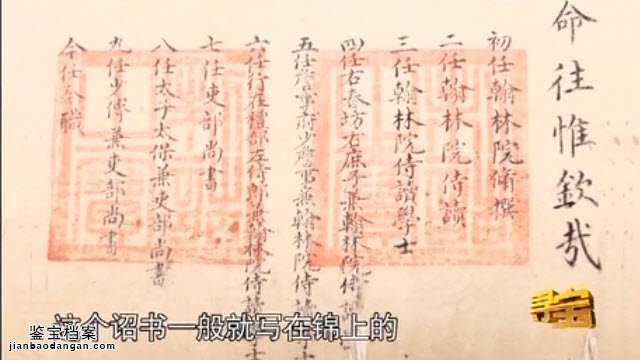 命往惟欽哉
初任翰林院脩撰
二任翰林院侍讀
三任翰林院侍讀學士
四任右春坊右庶子兼翰林院侍讀
五任詹事府少詹事兼翰林院侍
六任行在禮部左侍郎兼翰林院侍讀士
七任吏部尚書
八任太子太保兼吏部尚書
九任少傅兼吏部尚書
今任今職
寻宝
这个诏书一般就写在锦上的
鉴宝档案
jianbaodangan.com